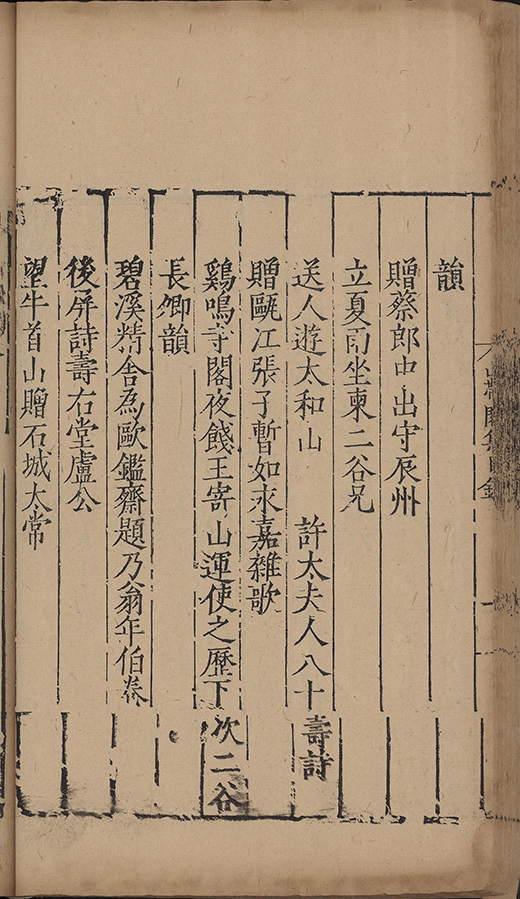 韻
贈蔡郎中出守辰州
立夏雨坐柬二谷兄
送人遊太和山　許太夫人八十壽詩
贈甌江張子暫如永嘉雜歌
鷄鳴寺閣夜餞王寄山運使之歷下次二谷
長卿韻
碧溪精舍為歐鑑齋題乃翁年伯卷
後屏詩壽右堂盧公
望牛首山贈石城太常